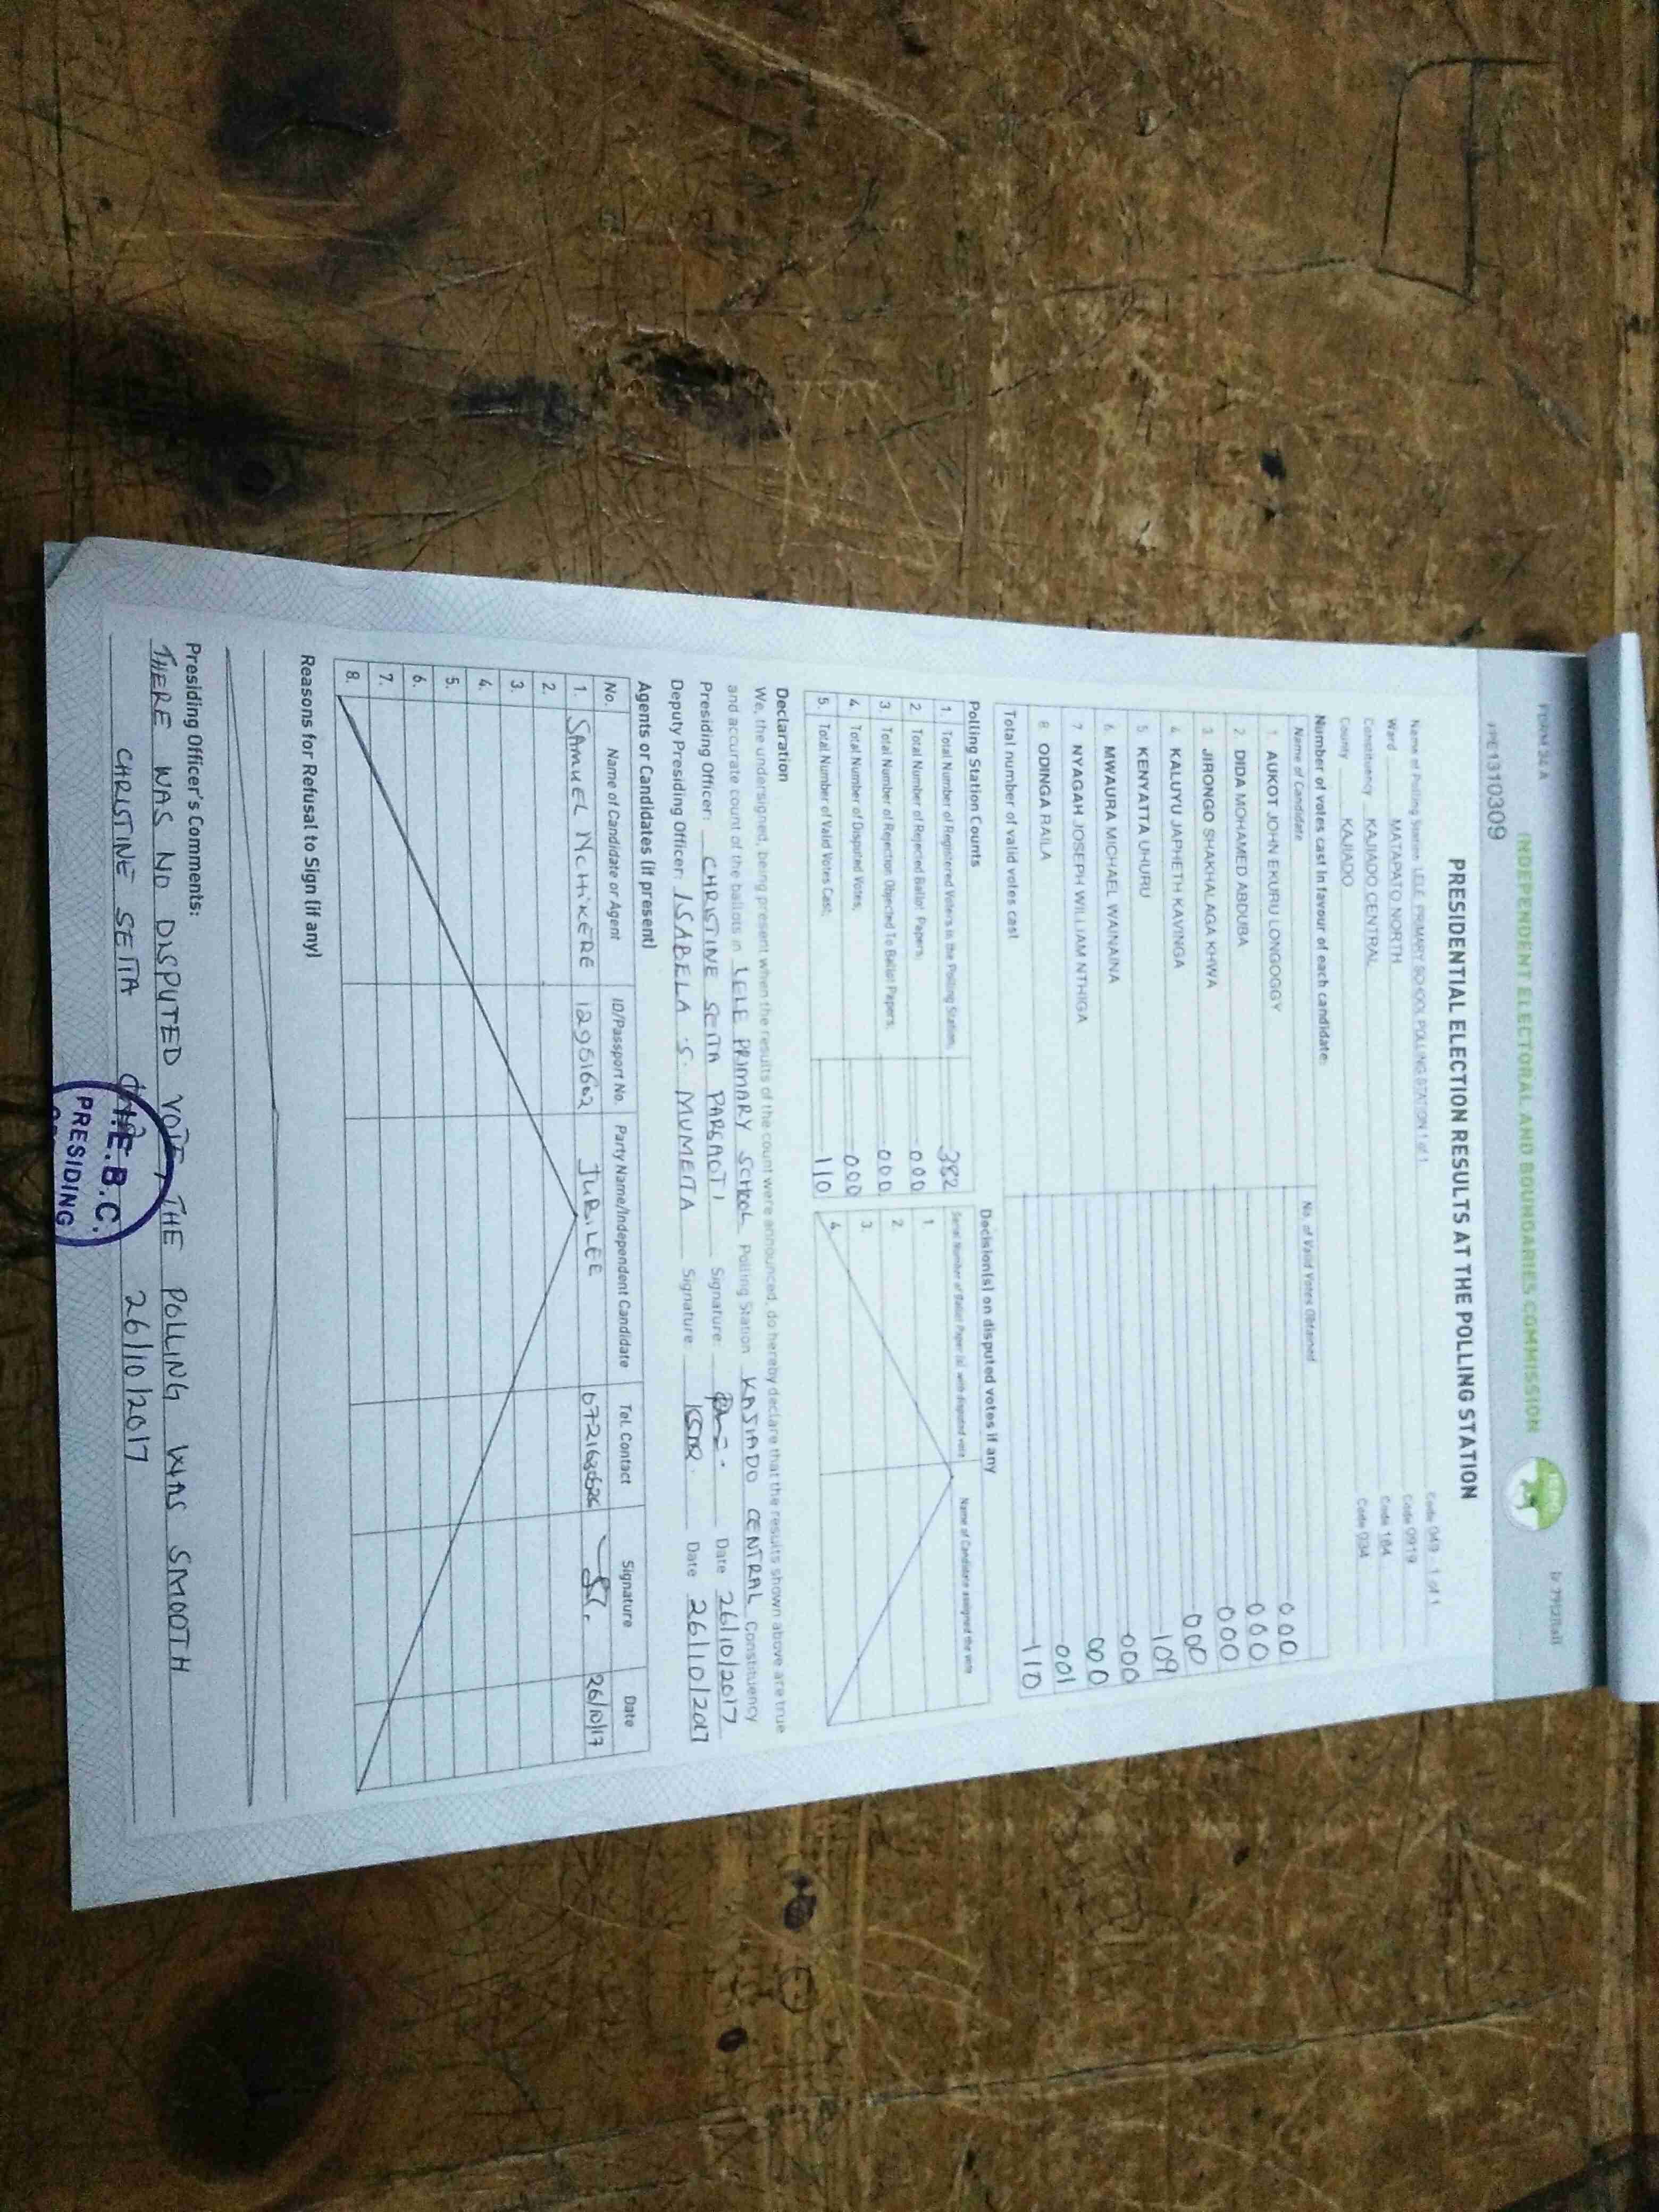 FORM 34A
INDEPENDENT ELECTORAL AND BOUNDARIES COMMISSION
PRE1310309
PRESIDENTIAL ELECTION RESULTS AT THE POLLING STATION
Name of Polling Station LELE PRIMARY SCHOOL POLLING STATION 1 of 1 Code 049 - 1 of 1
Ward MATAPATO NORTH Code 0919
Constituency KAJIADO CENTRAL Code 184
County KAJIADO Code 034
Number of votes cast in favour of each candidate:
Name of Candidate No. of Valid Votes Obtained
1. AUKOT JOHN EKURU LONGOGGY 000
2. DIDA MOHAMED ABDUBA 000
3 JIRONGO SHAKHALAGA KHWA 000
4 KALUYU JAPHETH KAVINGA 000
5 KENYATTA UHURU 109
6 MWAURA MICHAEL WAINAINA 000
7 NYAGAH JOSEPH WILLIAM NTHIGA 000
8 ODINGA RAILA 001
Total number of valid votes cast 110
Polling Station Counts
1. Total Number of Registered Voters in the Polling Station; 382
2. Total Number of Rejected Ballot Papers; 000
3. Total Number of Rejection Objected To Ballot Papers; 000
4. Total Number of Disputed Votes; 000
5. Total Number of Valid Votes Cast; 110
Decision(s) on disputed votes if any
Serial Number of Ballot Paper (s) with disputed vote Name of Candidate assigned the vote
1
2
3.
4.
Declaration
We, the undersigned, being present when the results of the count were announced, do hereby declare that the results shown above are true
and accurate count of the ballots in LELE PRIMARY SCHOOL Polling Station KAJIADO CENTRAL Constituency
Presiding Officer: CHRISTINE SEITA Signature: Date 26/10/2017
Deputy Presiding Officer: ISABELA S. MUMEITA Signature: Date 26/10/2017
Agents or Candidates (if present)
No. Name of Candidate or Agent ID/Passport No. Party Name/Independent Candidate Tel. Contact Signature Date
1. SAMUEL NCHIKERE JUBILEE 26/10/17
2.
3.
4.
5.
6.
7.
8.
Reasons for Refusal to Sign (if any)
Presiding Officer's Comments:
THERE WAS NO DISPUTED VOTE, THE POLLING WAS SMOOTH
CHRISTINE SEITA 26/10/2017
I.E.B.C.
PRESIDING